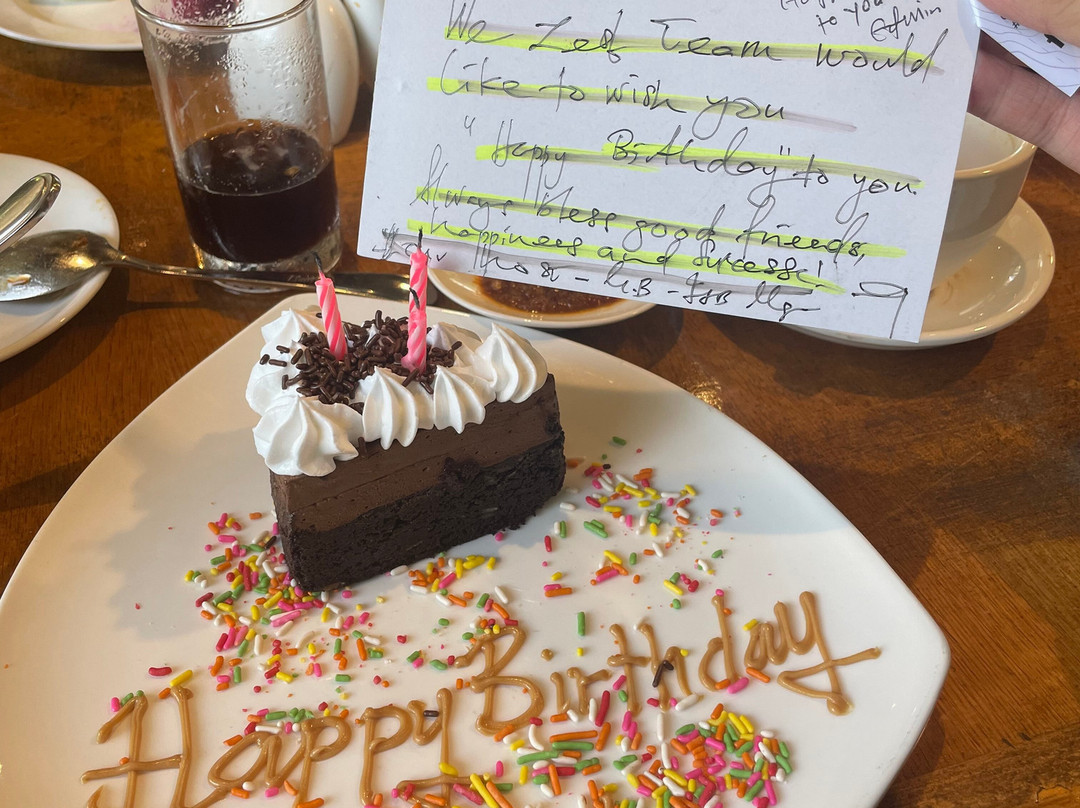 to you
Edwin
We Zest Team would
like to wish you
"Happy Birthday" to you.
Always bless good friends,
happiness and success!
Happy Birthday